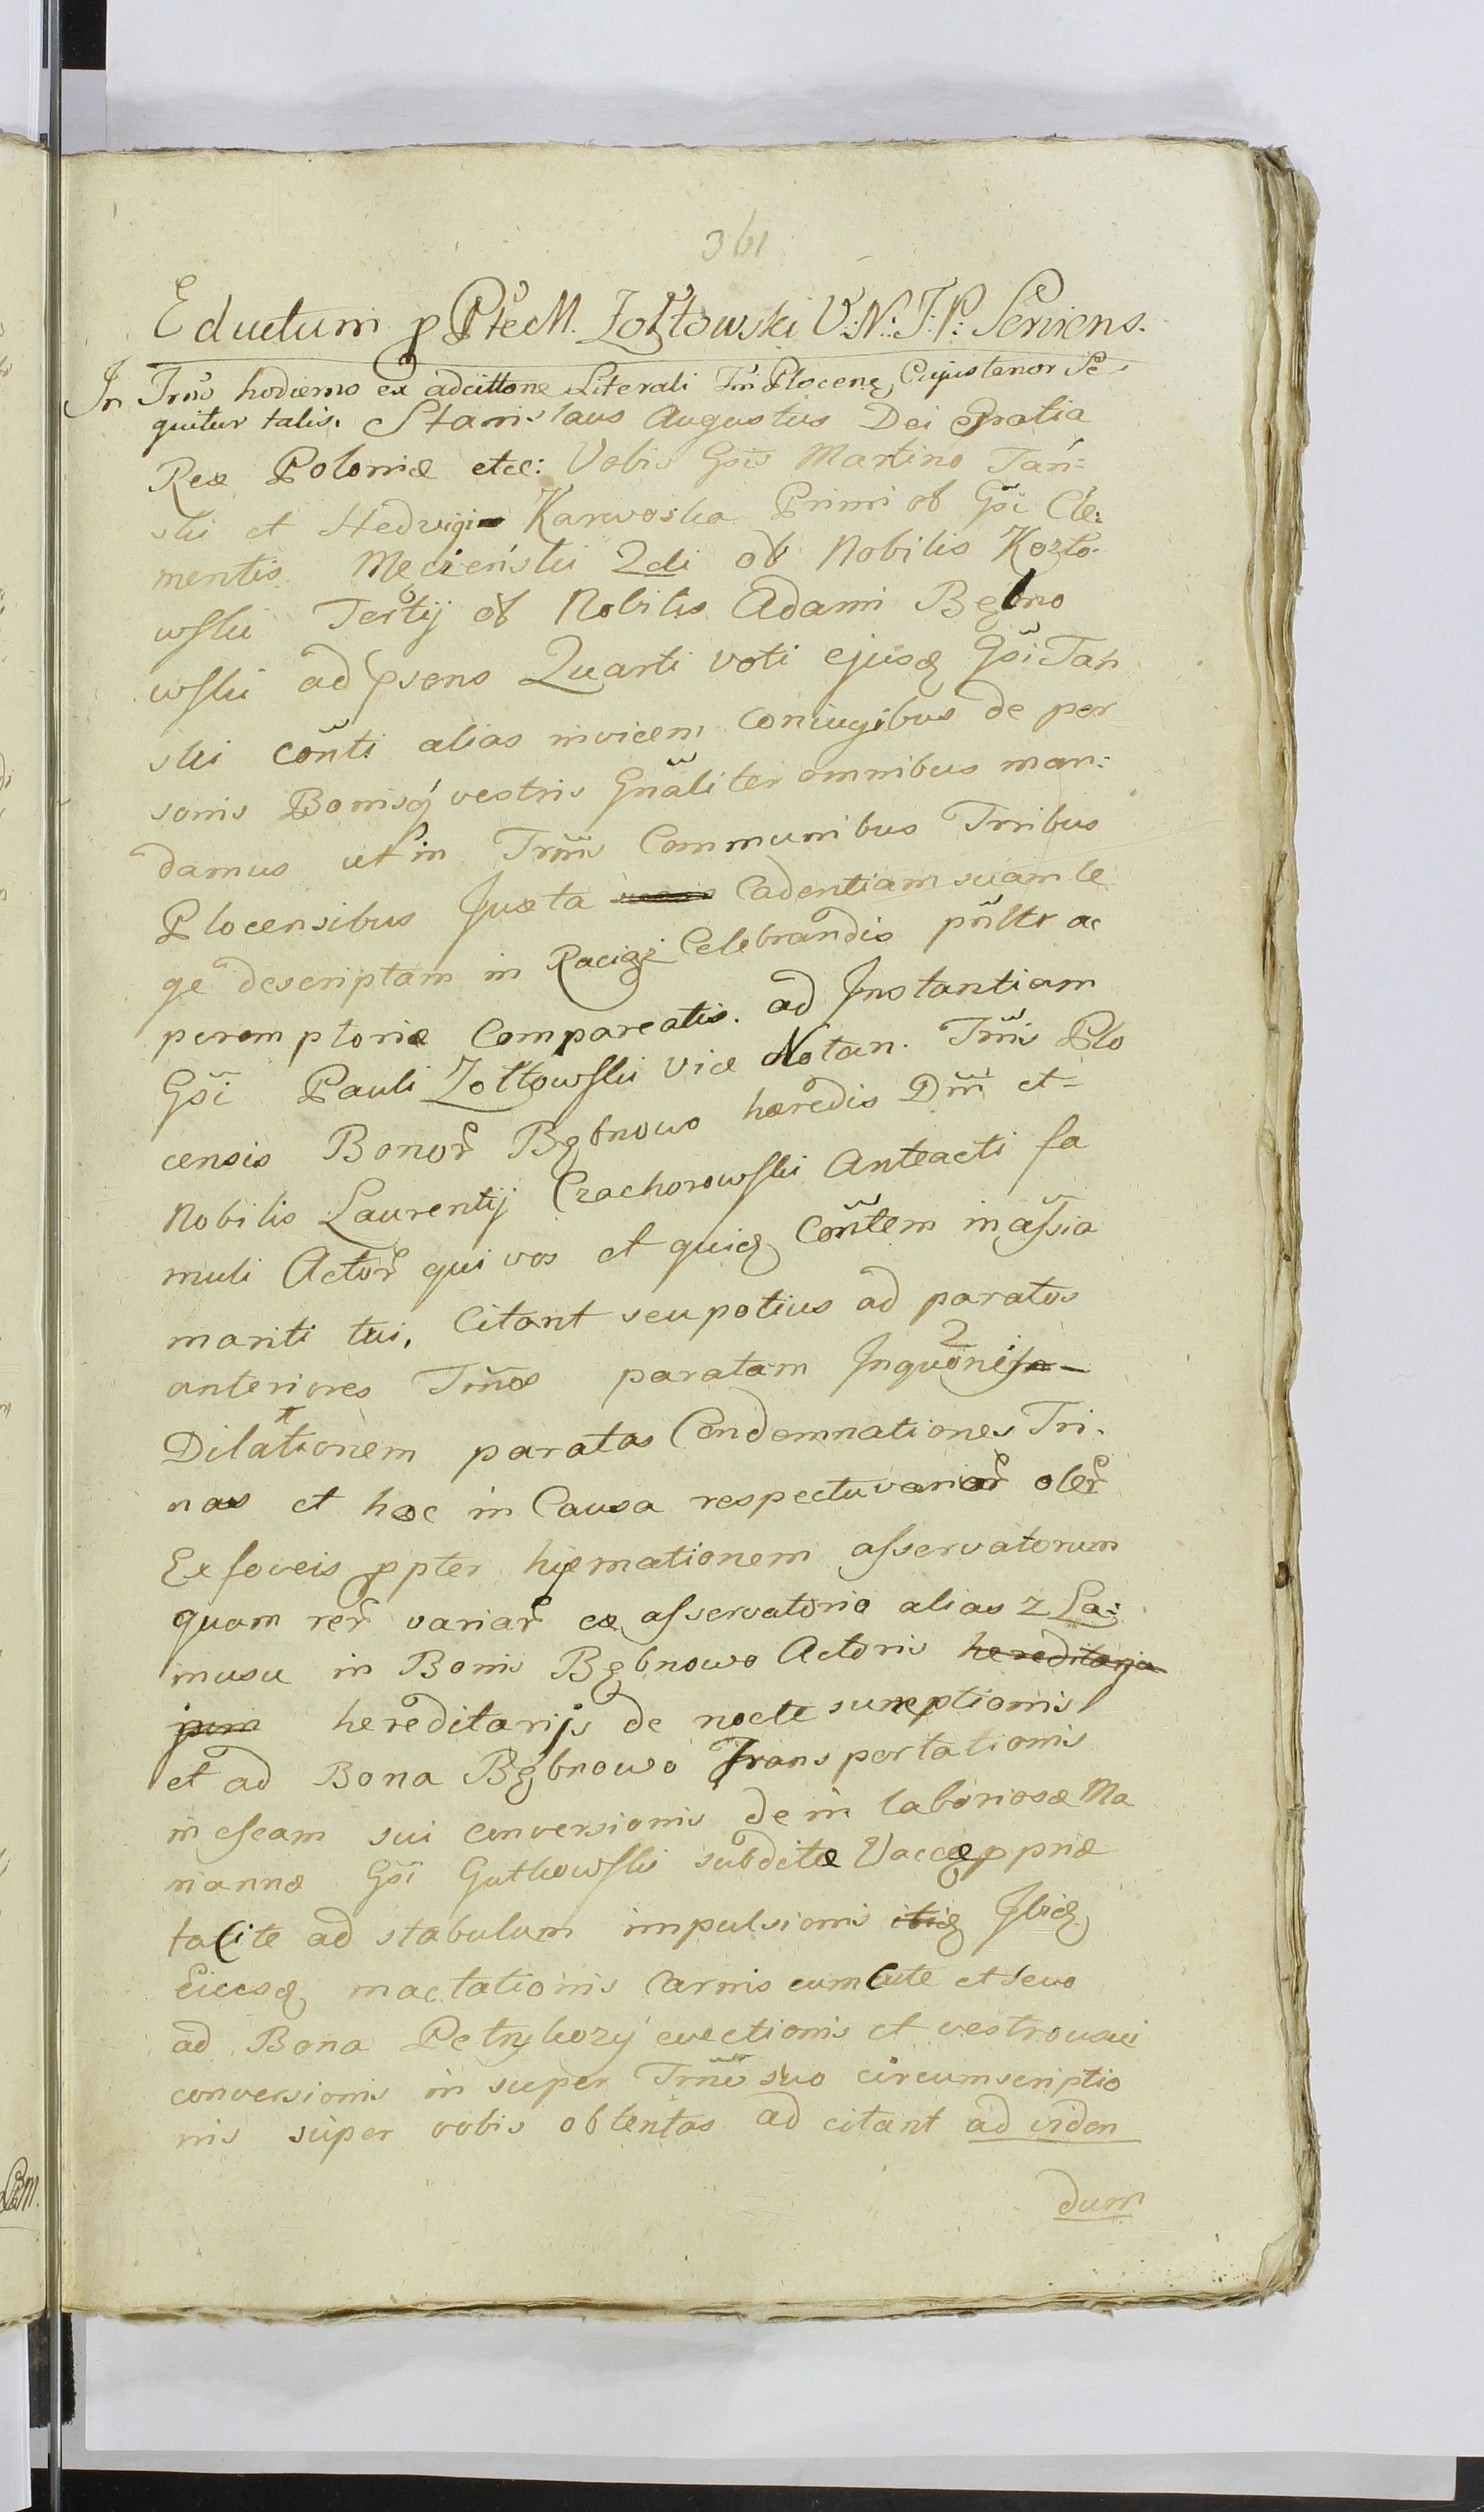 361
Eductum p Ptē M. Zołtowski V: N: T: P: Serviens.
In Trno hodierno ex adcittone Literali Tri Plocen, Cujus tenor Se-
quitur talis. Stanislaus Augustus Dei Gratia
Rex Poloniæ etcc: Vobis Gsis Martino Tań=
ski et Hedvigi Karwoska Primi ob Gsi Cle:
mentis Mecieński 2di ob Nobilis Kozło-
wski Tertij ob Nobilis Adami Bębno
wski ad psens Quarti voti ejusq Gsi Tań
ski conti alias invicem coniugibus de per
sonis Bonisq vestris Gnaliter omnibus man:
damus ut in Trnis Communibus Trribus
Plocensibus Juxta Cadentiam suam le
ge descriptam in Raciąż Celebrandis pnltr ac
peremptorie Compareatis. ad Instantiam
Gsi Pauli Zołtowski Vice Notan. Trris Plo
censis Bonor Bębnowo hæredis Dni et=
Nobilis Laurentij Czachorowski Anteacti fa
muli Actor qui vos et quidem Contem in assia
mariti tui, Citant seu potius ad paratos
anteriores Trnos paratam Inquoni 2
Dilationem paratas Condemnationes Tri.
nas et hoc in Causa respectu varior oler
Ex foveis ppter hyemationem asservatorum
quam rer variar ex asservatorio alias z La:
musu in Bonis Bębnowo Actoris hereditarja
jum hereditarijs de nocte sumptionis
et ad Bona Bębnowo Transportationis
in escam sui conversionis dein laboriosæ Ma
riannæ Gsi Gutkowski subditæ Vaccæ ppriæ
tacite ad stabulum impulsionis itiq Ibiq
Eiusq mactationis Carnis cum Cute et sevo
ad Bona Petrykozy evectionis et vestro usui
conversionis in super Trno suo circumscriptio
nis super vobis obtentas ad citant ad viden
dum